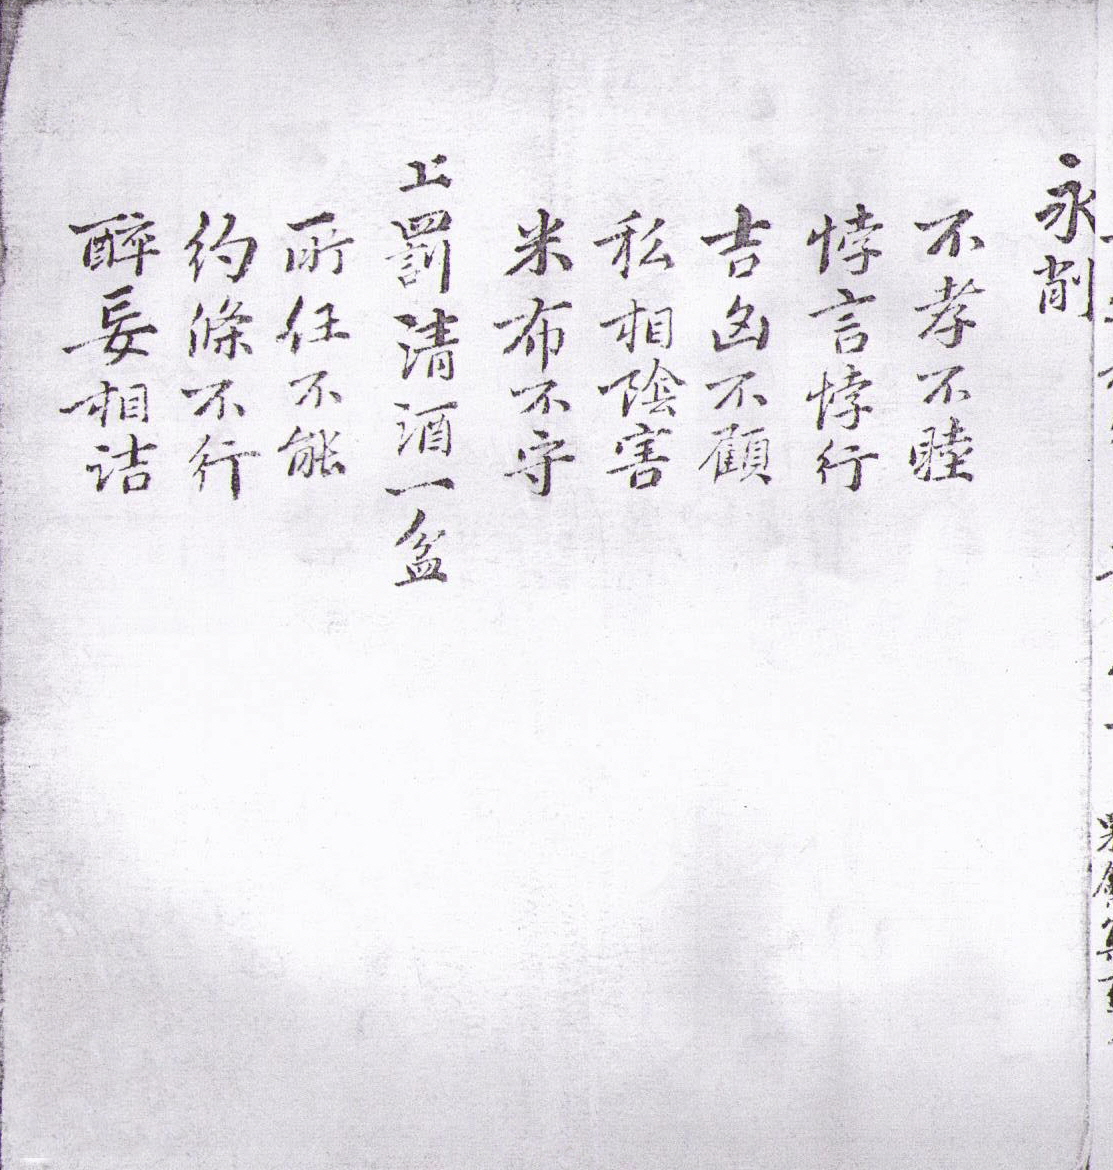 永削
不孝不睦
悖言悖行
吉凶不顧
私相陰害
米布不守
上罰清酒一盆
所任不能
約條不行
醉妄相詰